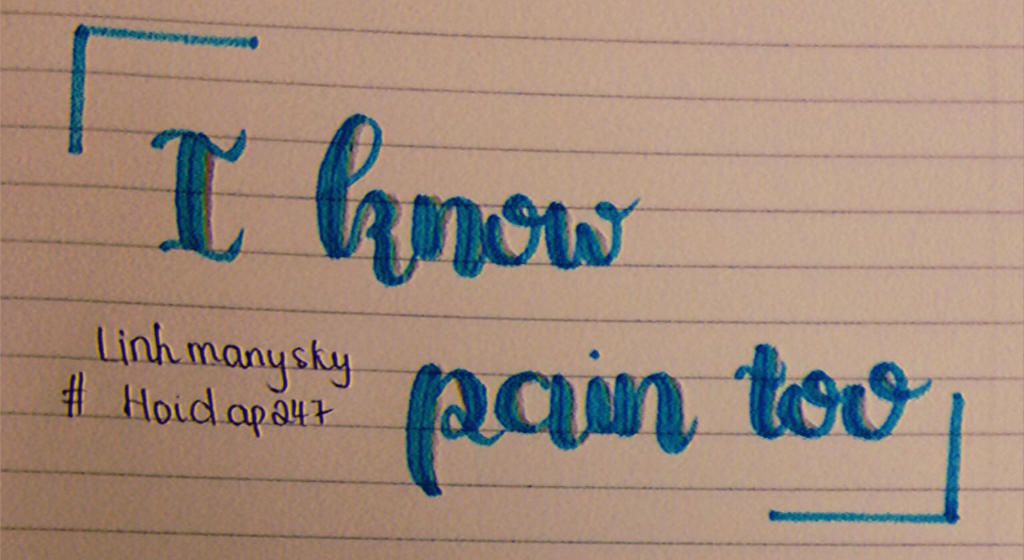 I know
Linhmanysky
# Hoidap247
pain too